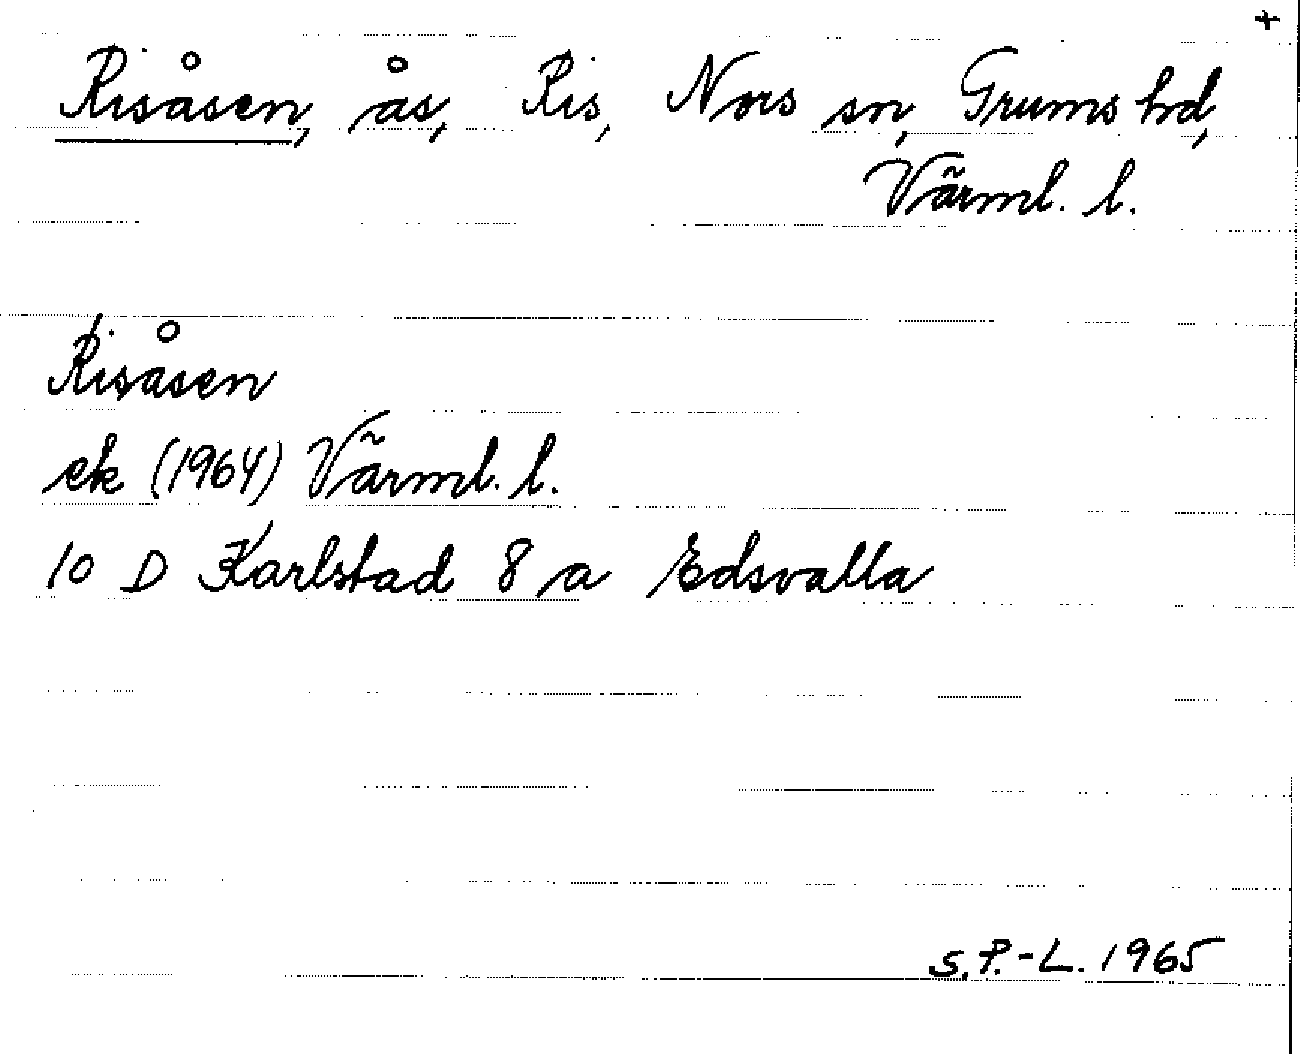 +
Risåsen, ås, Ris, Nors sn, Grums hd,
Värml. l.
Risåsen
ek (1964) Värml. l.
10 D Karlstad 8 a Edsvalla
S.P.-L. 1965